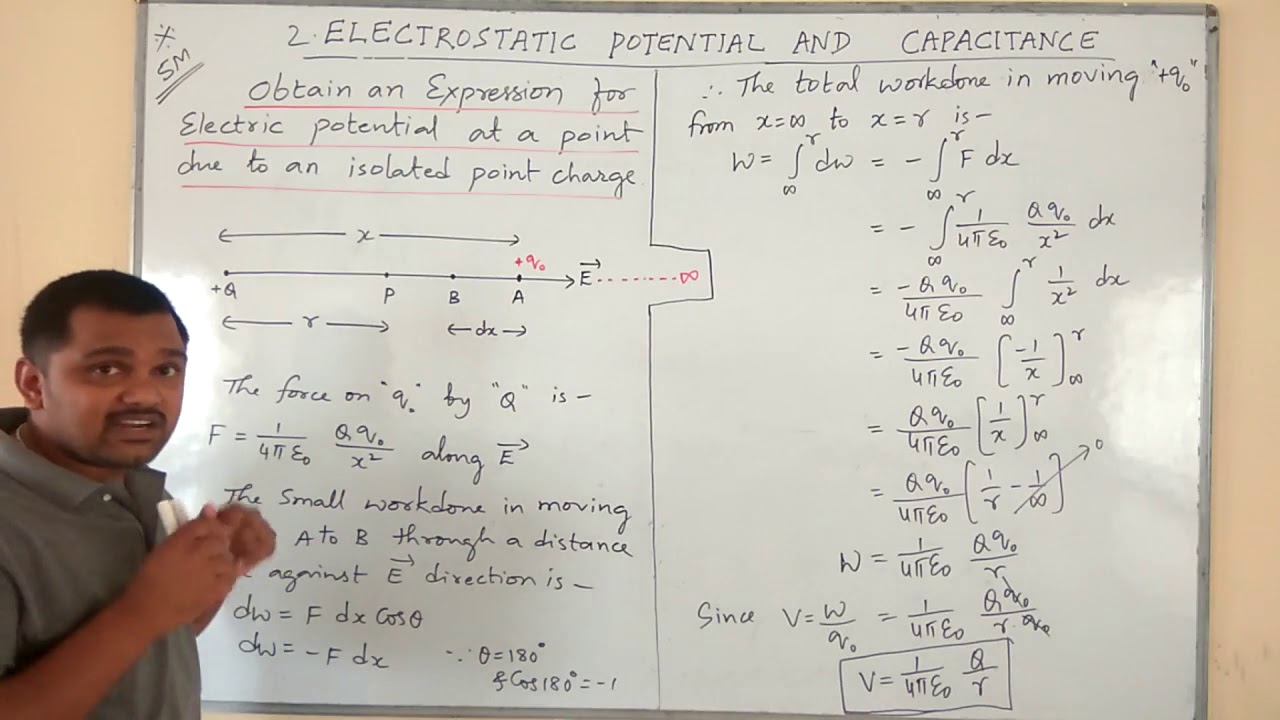 *
5M
2. ELECTROSTATIC POTENTIAL AND CAPACITANCE
Obtain an Expression for
Electric potential at a point
due to an isolated point charge
x
+q₀
+Q P B A E⃗ ∞
r dx
The force on "q₀" by "Q" is –
F = 1/4πε₀ Qq₀/x² along E⃗
The Small workdone in moving
A to B through a distance
against E⃗ direction is –
dw = F dx Cosθ
dw = –F dx ∵ θ=180°
& Cos180°=-1
∴ The total workdone in moving "+q₀"
from x=∞ to x=r is –
W = ∫_∞^r dw = – ∫_∞^r F dx
= – ∫_∞^r 1/4πε₀ Qq₀/x² dx
= –Qq₀/4πε₀ ∫_∞^r 1/x² dx
= –Qq₀/4πε₀ [–1/x]_∞^r
= Qq₀/4πε₀ [1/x]_∞^r
= Qq₀/4πε₀ [1/r – 1/∞] 0
W = 1/4πε₀ Qq₀/r
Since V = W/q₀ = 1/4πε₀ Qq₀/r·q₀
V = 1/4πε₀ Q/r